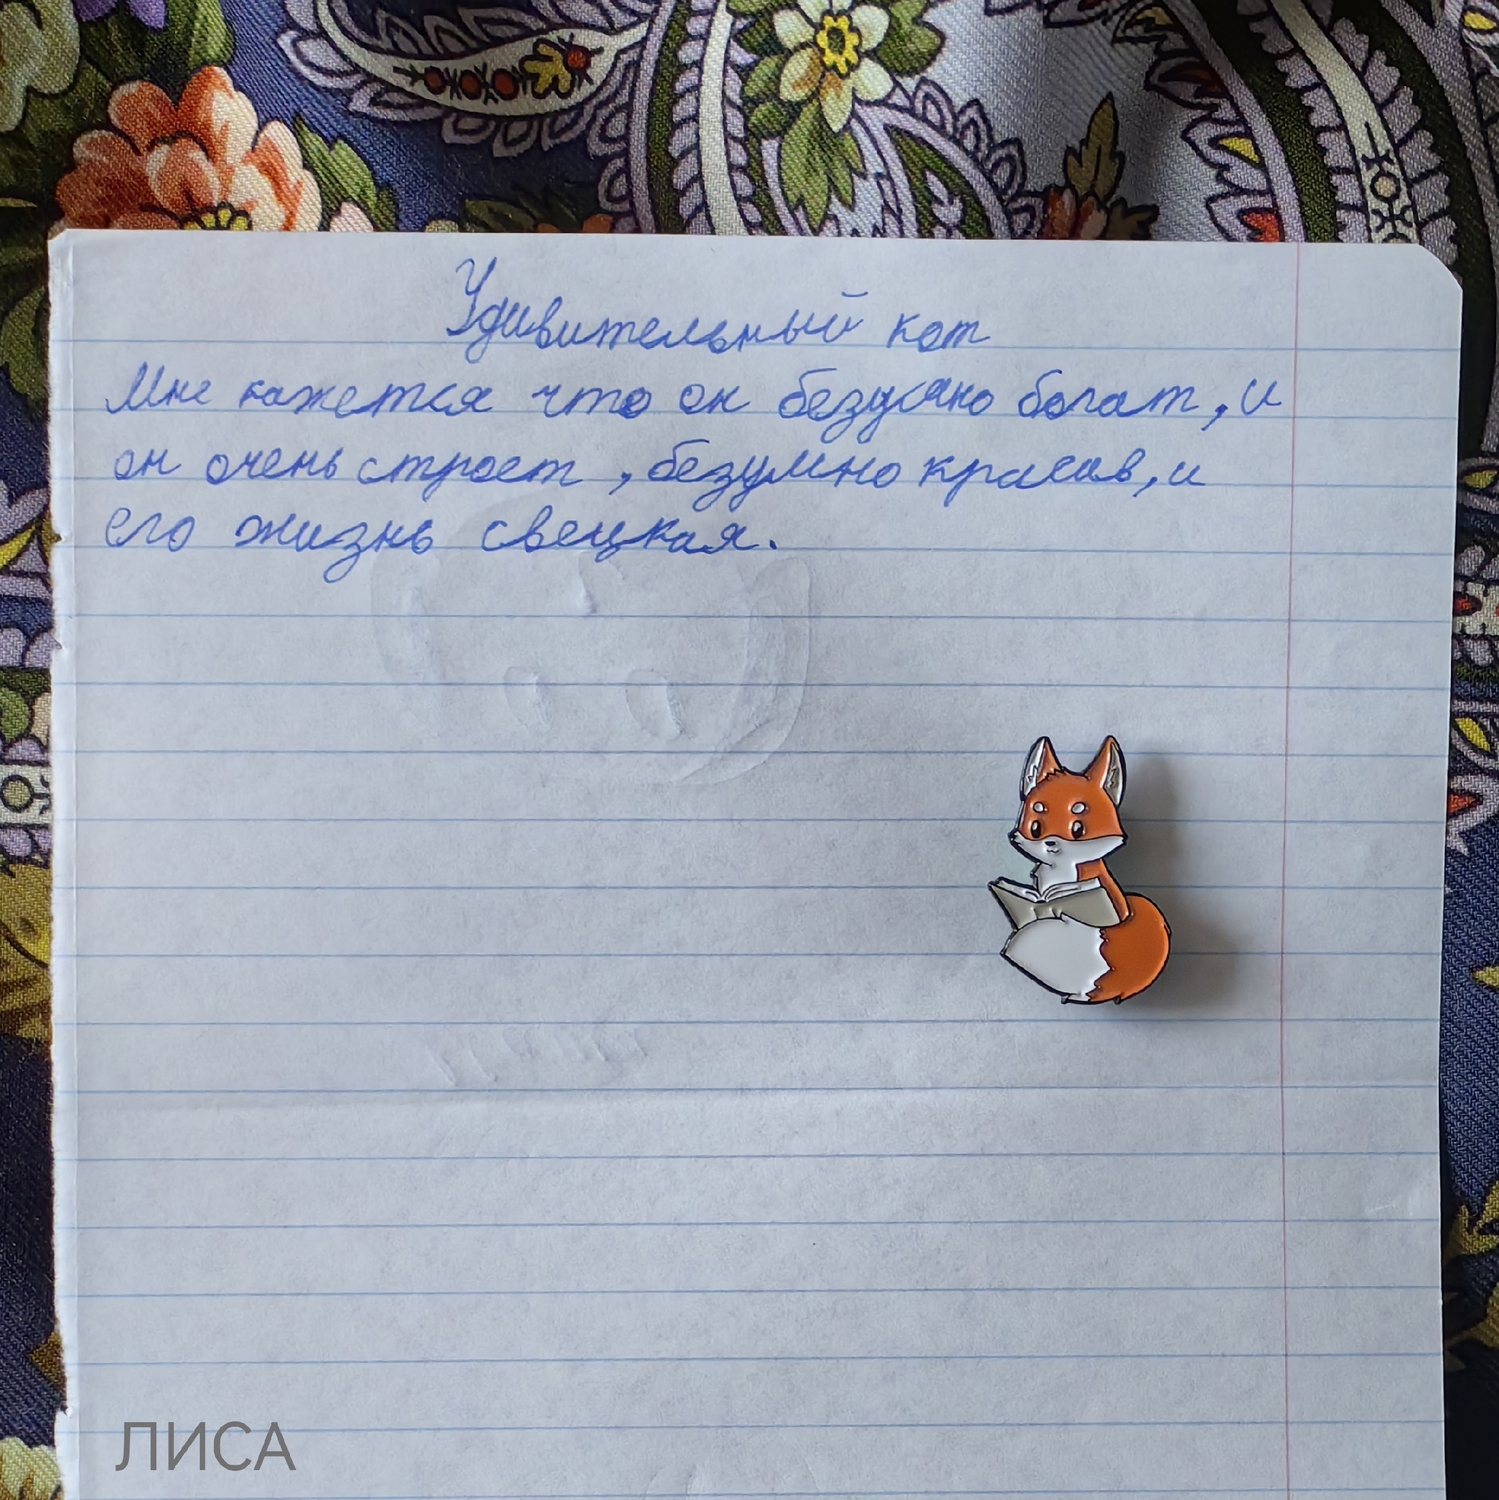 Удивительный кот
Мне кажется что он безумно богат, и
он очень строст, безумно красив, и
его жизнь свецкая.
ЛИСА